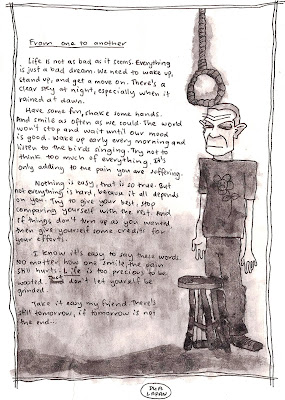 From one to another
Life is not as bad as it seems. Everything
is just a bad dream. We need to wake up,
stand up, and get a move on. There's
clear sky at night, especially when it
rained at dawn.
Have some fun, shake some hands.
And smile as often as we could. The world
won't stop and wait until our mood
is good. Wake up early every morning and
listen to the birds singing. Try not to
think too much of everything. It's
only adding to the pain you are suffering.
Nothing is easy, that is so true. But
not everything is hard, because it all depends
on you. Try to give your best, stop
comparing yourself with the rest. And
if things don't turn up as you wanted
then give yourself some credits for
your efforts.
I know it's easy to say these words.
No matter how one smile, the pain
still hurts. Life is too precious to be
wasted. don't let yourself be
grinded.
Take it easy my friend. There's
still tomorrow, if tomorrow is not
the end...